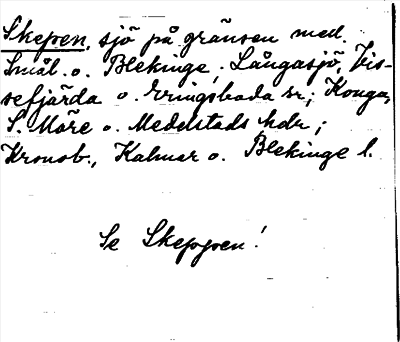 Skepen, sjö på gränsen med.
Smål. o. Blekinge, Långasjö, Vis-
sefjärda o. Eringsboda snr; Konga,
S. Möre o. Medelstads hdr;
Kronob., Kalmar o. Blekinge l.
Se Skeppen!